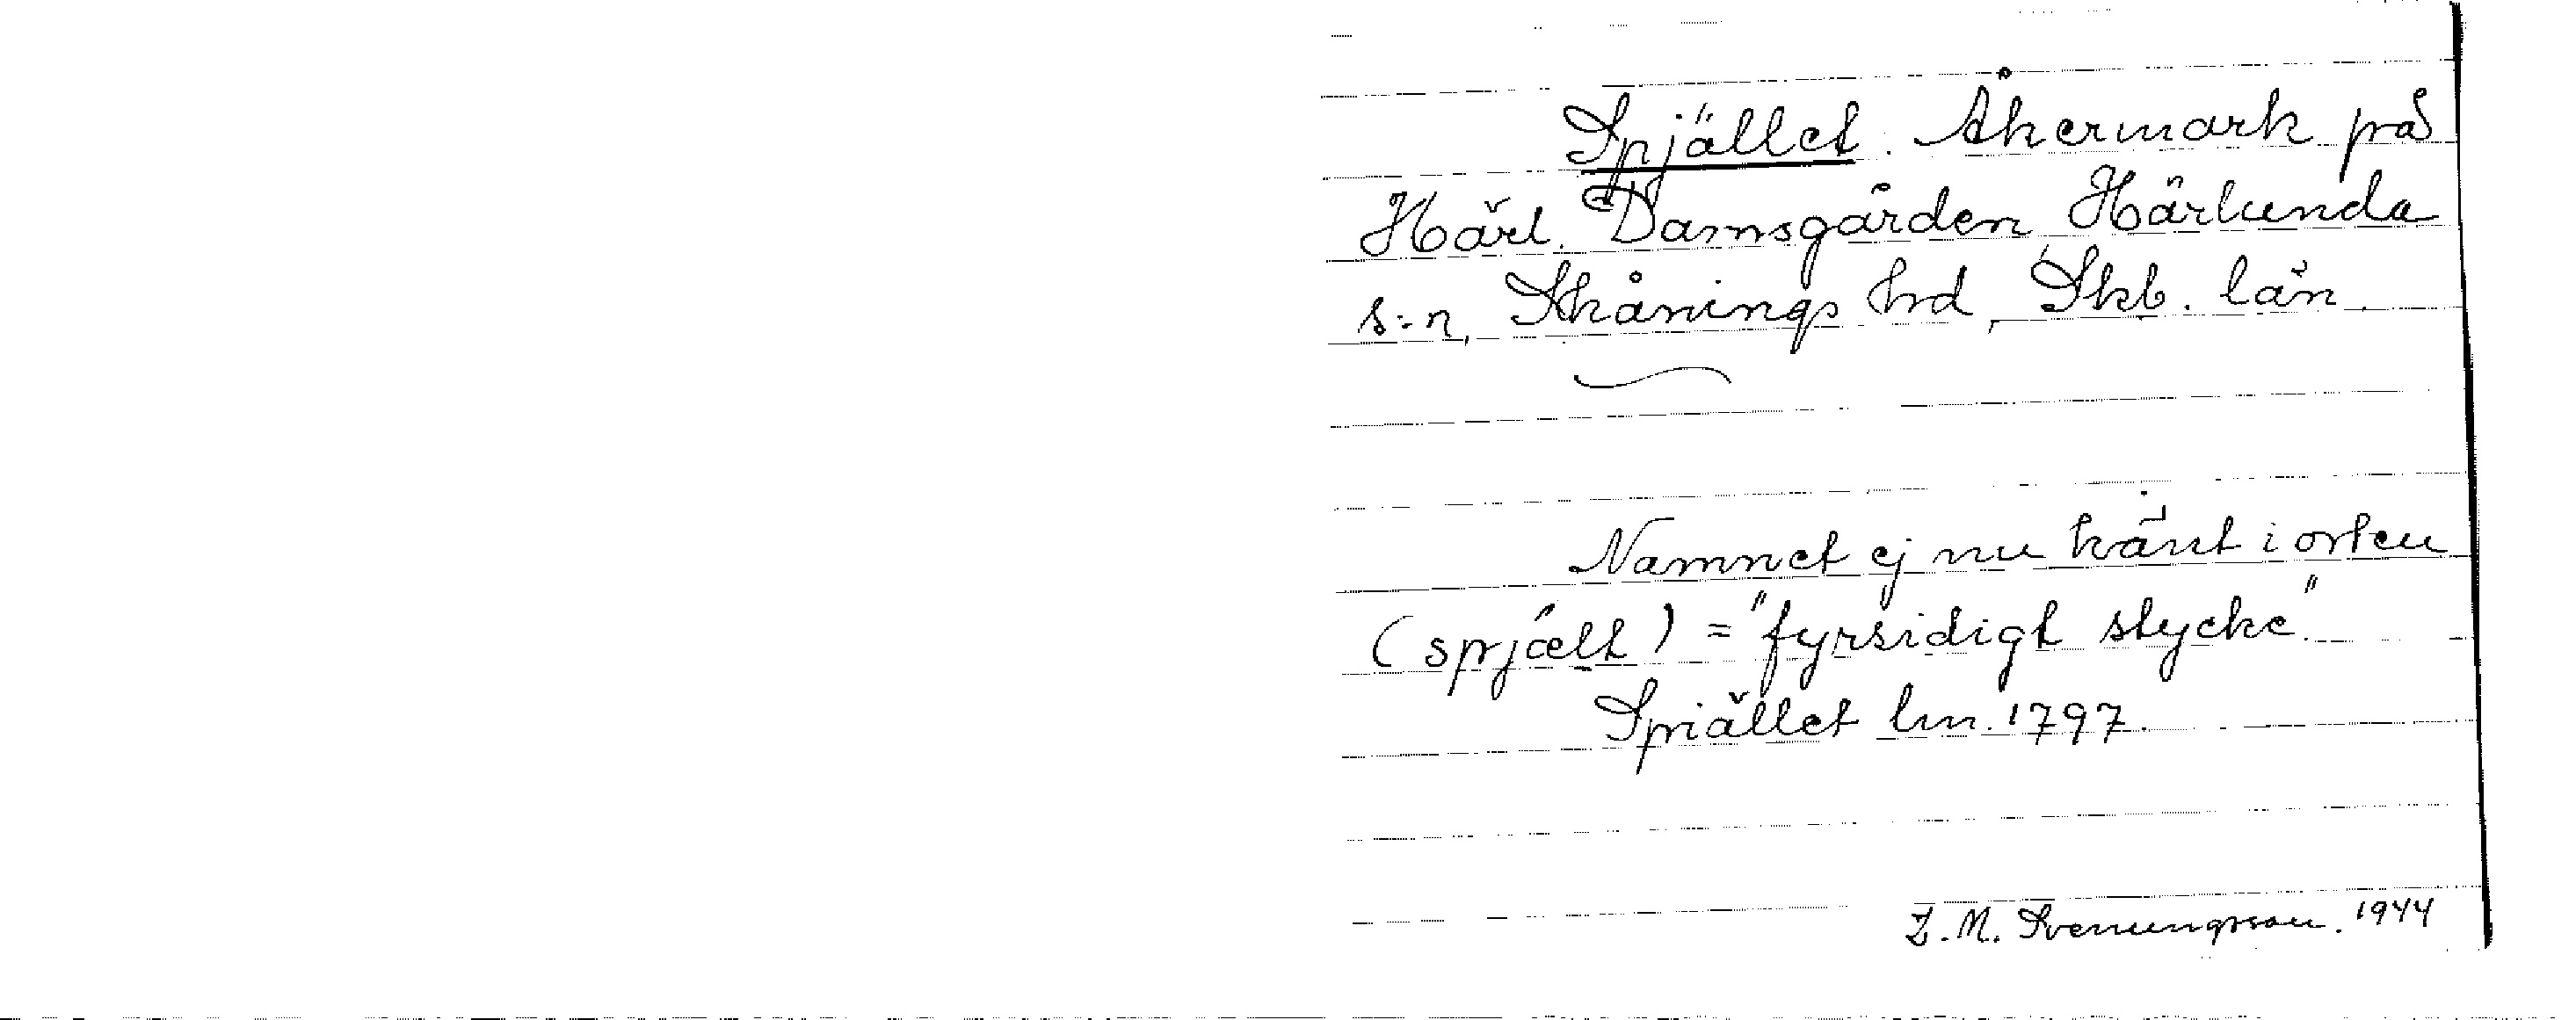 Spjället. Åkermark på
Härl. Damsgården Härlunda
s:n, Skånings hrd, Skb. län.
Namnet ej nu känt i orten
(spjælt) = "fyrsidigt stycke"
Spiället lm. 1797.
Z. M. Svenungsson. 1944